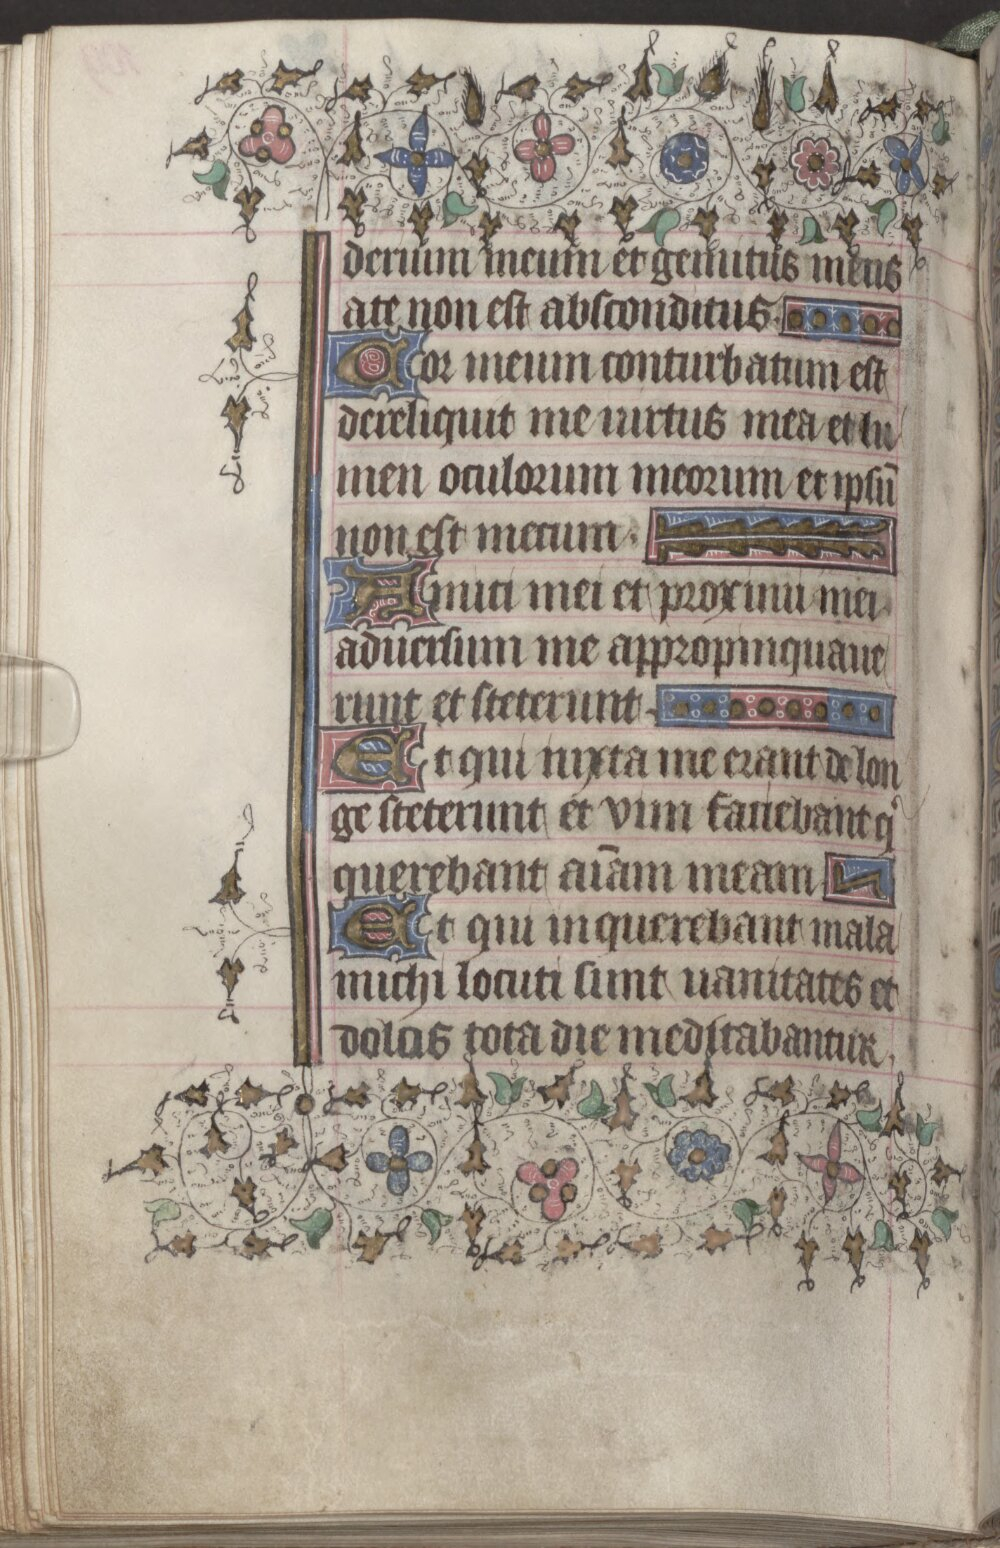 derium meum et gemitus meus
ate non est absconditus
Cor meum conturbatum est
dereliquit me uirtus mea et lu
men oculorum meorum et ipsū
non est mecum.
Amici mei et proximi mei
aduersum me appropinquaue
runt et steterunt.
Et qui iuxta me erant de lon
ge steterunt et vim faciebant q̇
querebant aīam meam
Et qui inquerebant mala
michi locuti sunt uanitates et
dolcis tota die meditabantur.